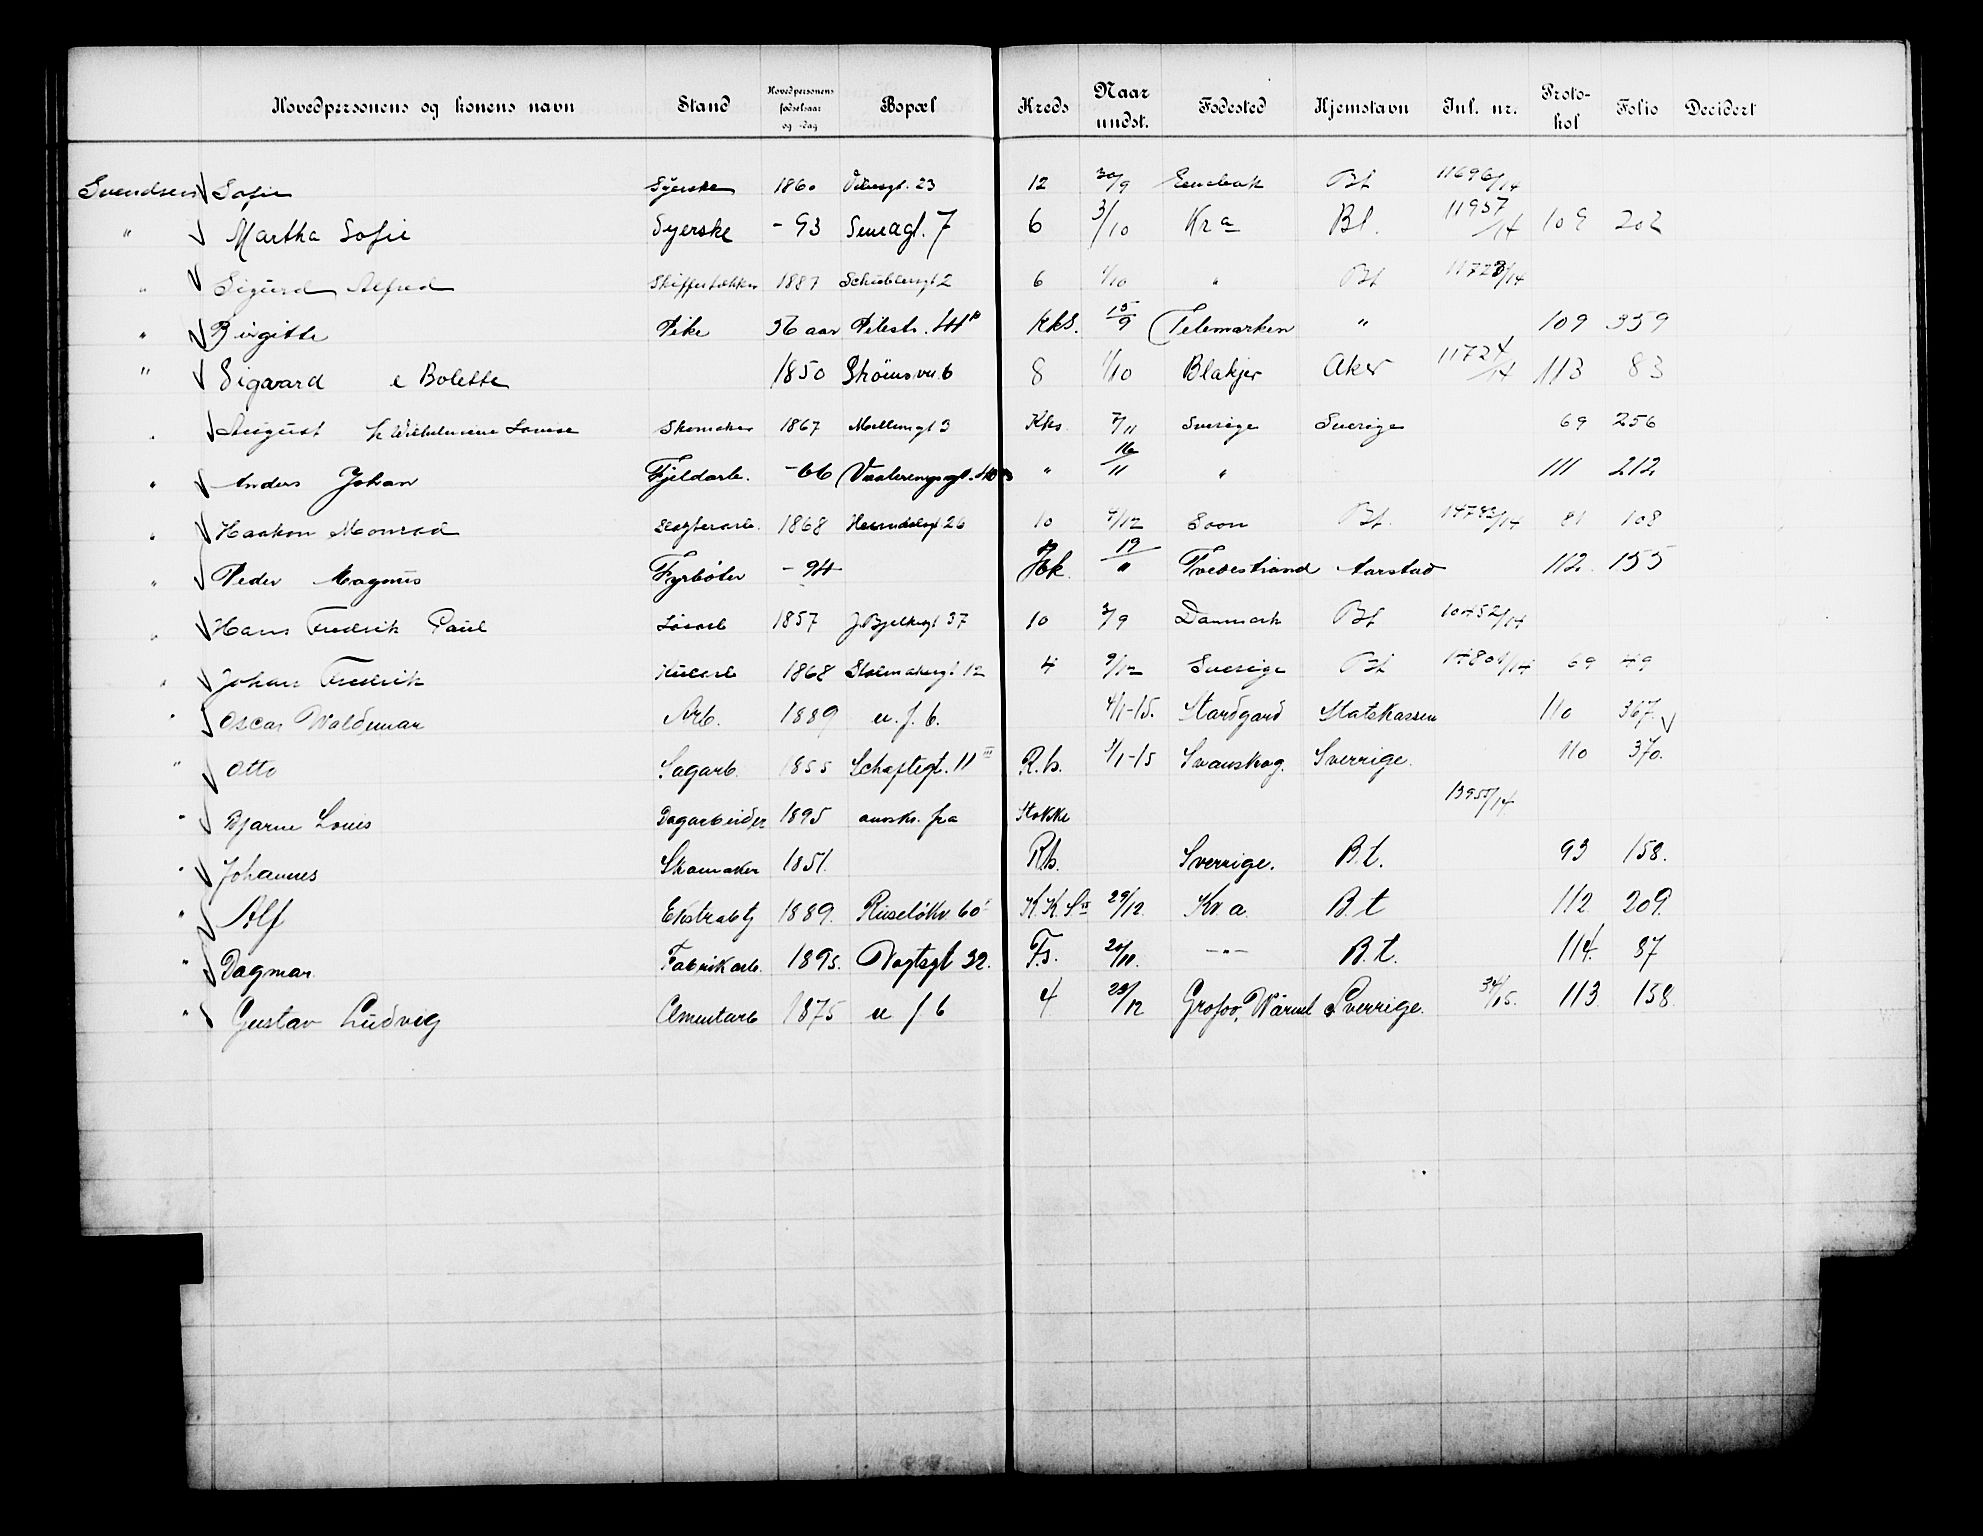 Hovedpersonens og konens navn Stand Hovedpersonens fødselsaar og -dag Bopæl Kreds Naar undst. Fødested Hjemstavn Jnl. nr. Proto-kol Folio Decidert
Svendsen Sofie Syerske 1860 23 12 30/9 Bt 11696/14
" Martha Sofie Syerske - 93 7 6 3/10 Kr a Bt. 11957/14 109 202
" Sigurd Alfred 1887 Schüblersgt 2 6 1/10 " Bt 11728/14
" Birgitte Pike 56 aar Pilestr. KkS. 15/9 Telemarken " 109 359
" Sigvard e Bolette 1850 8 1/10 Blakjer Aker 11724/14 113 83
" August h Wilhelmine Lovise Skomaker 1867 Møllergt 3 Kks. 7/11 Sverige Sverige 69 256
" Anders Johan Fjeldarb. - 66 Vaalerenggt. " 16/11 " 111 212
" Haakon Monrad Slagterarb. 1868 26 10 4/12 Soon Bt. 14782/14 81 108
" Peder Magnus Fyrbøter - 94 19/" Tvedestrand Aarstad 112. 155
" Hans Fredrik Paul Løsarb 1857 J. Bjelkesgt 37 10 3/9 Danmark Bt 10452/14
" Johan Fredrik 1868 Stolmakergt 12 4 9/12 Sverige Bt 14801/14 69 49
" Oscar Waldemar Arb. 1889 u. f. b. 4/1-15. Statskassen 110 367.
" Otto Sagarb. 1855 Schaftegt. 11 III R.h. 5/1-15 Svanskog. Sverrige. 110 370.
" Bjarne Louis Dagarbeider 1895 ansks. fra Stokke 13955/14
" Johannes Skomaker 1851. R.h. Sverrige. B.t. 93 158.
" Alf Ekstrabtj 1889. Ruseløkv 60 K.K.S 29/12 Kr. a. B.t 112 209.
" Dagmar Fabrikarb. 1895. Vogtsgt 32. F.s. 20/11. -"- B.t. 114. 87
" Gustav Ludvig Cementarb 1875 u f b 4 23/12 Värml Sverrige. 34/15. 113. 158.